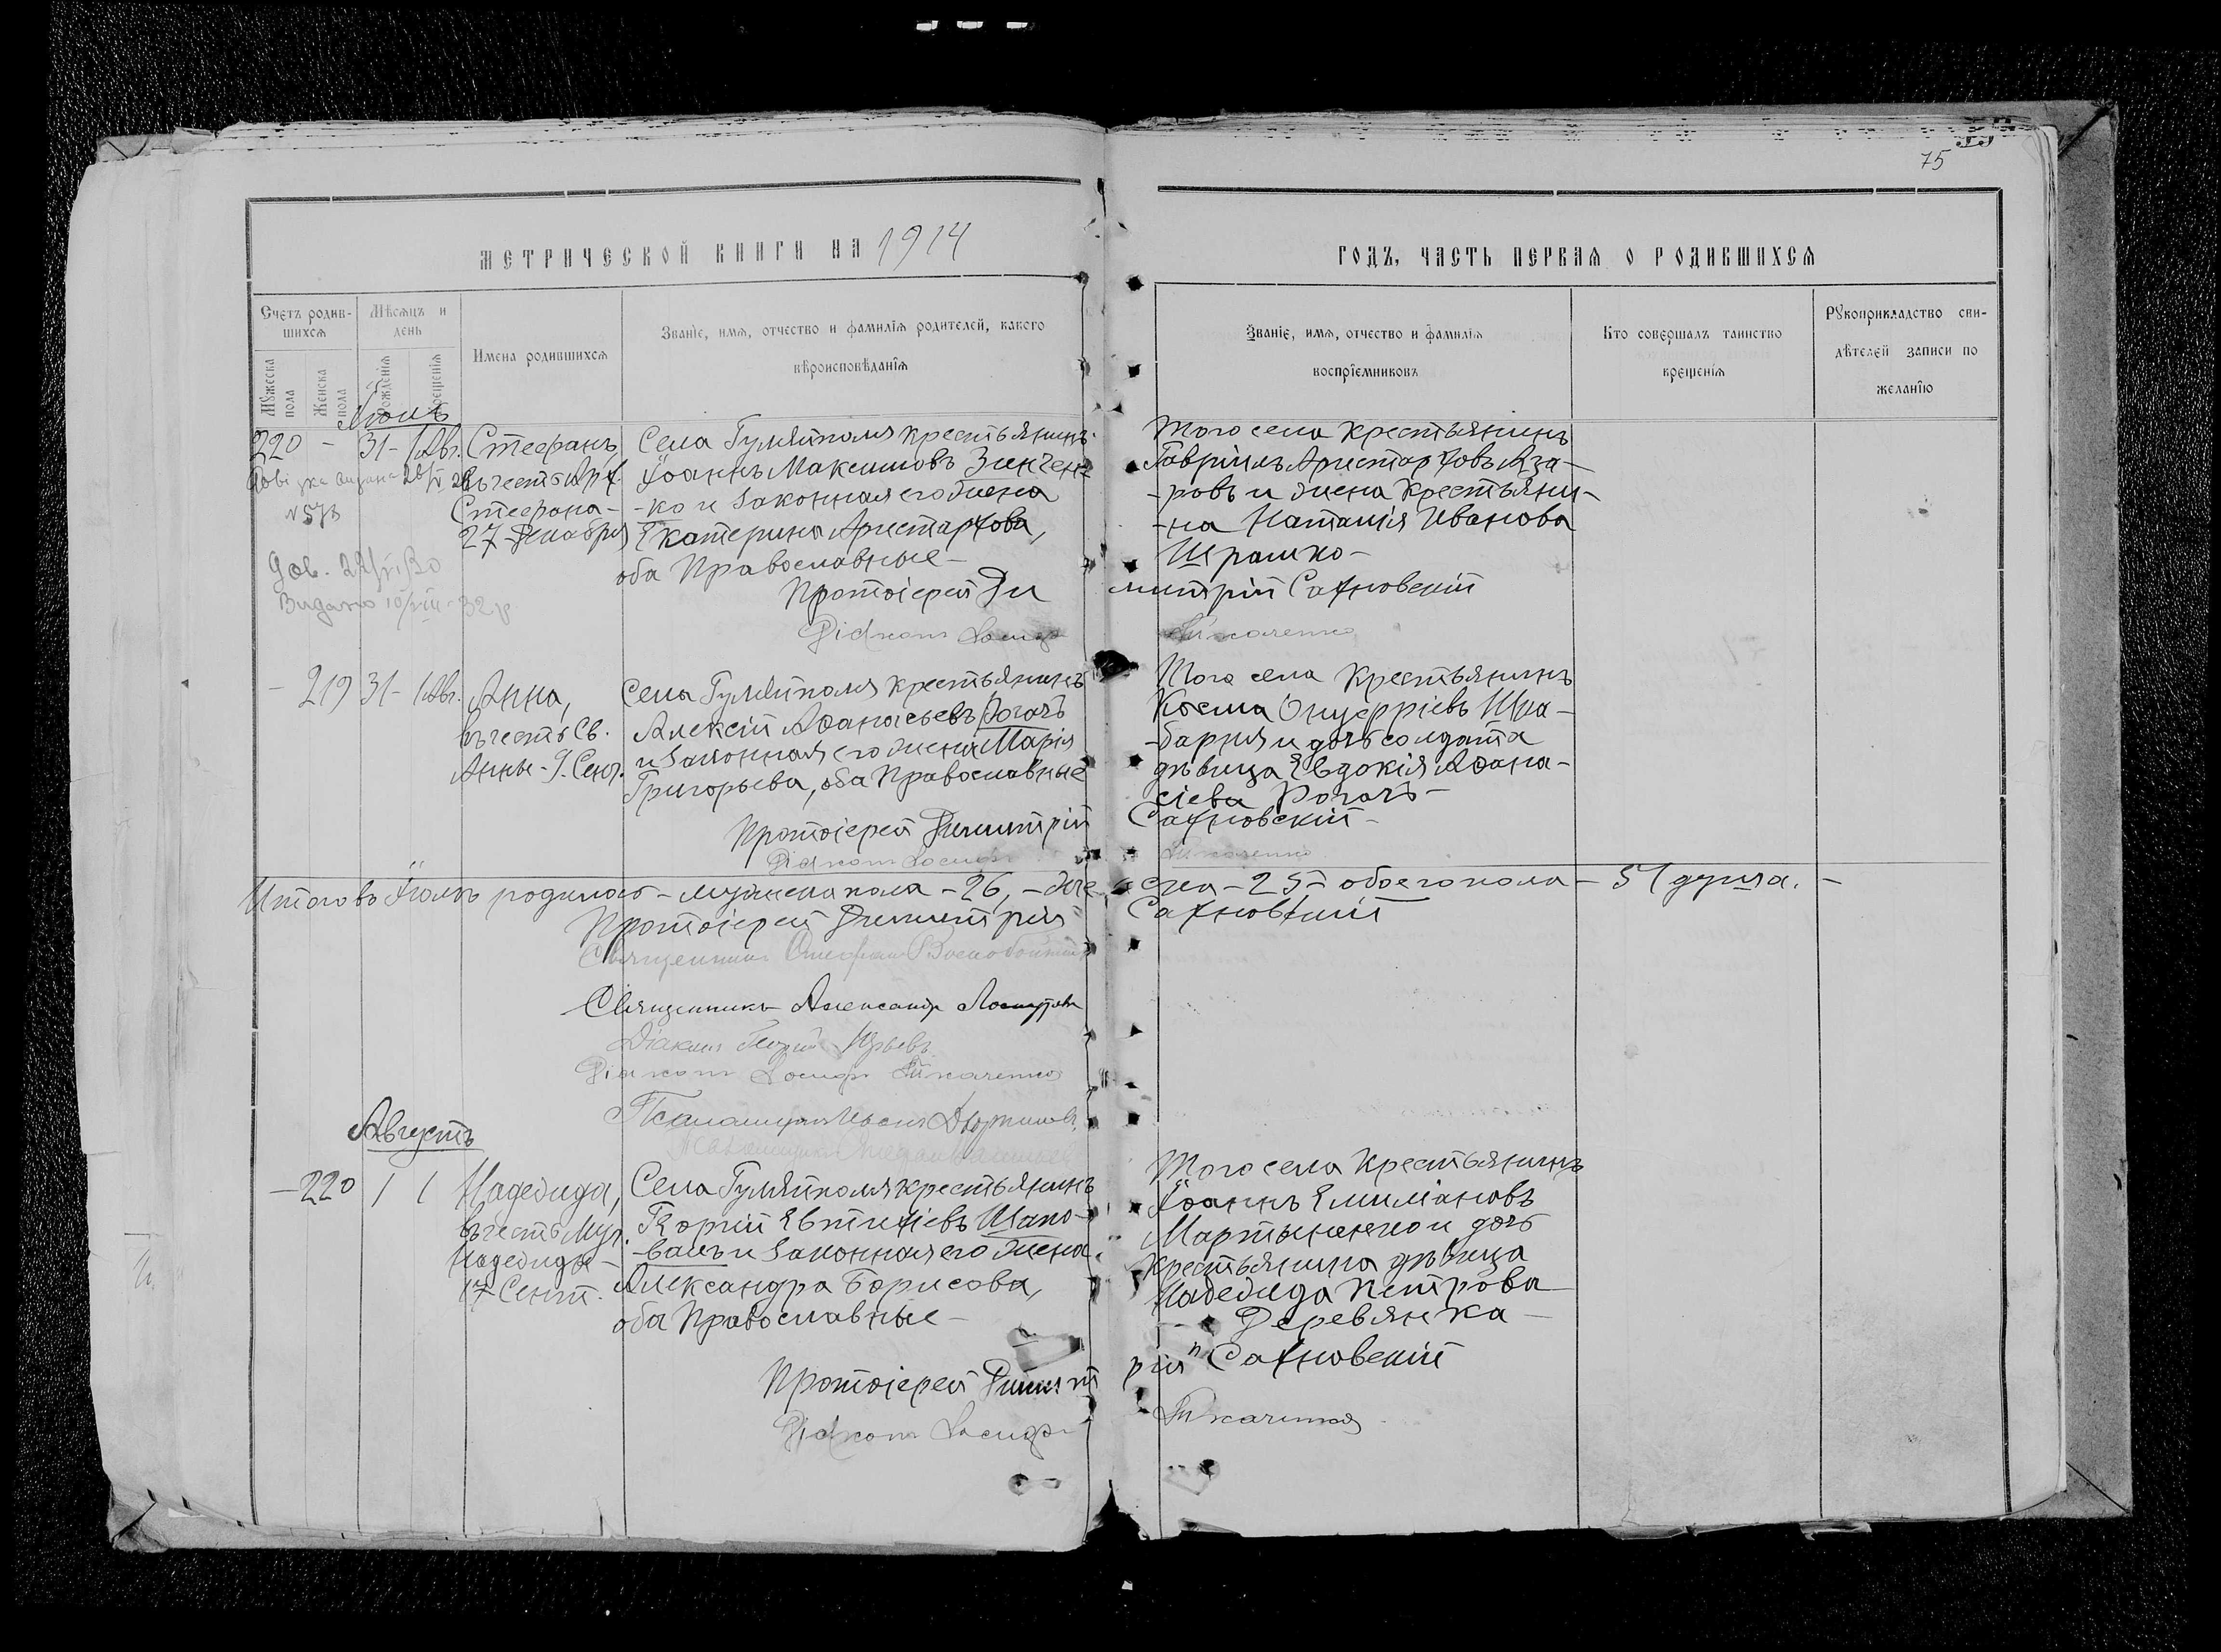 75
МЕТРИЧЕСКОЙ КНИГИ НА 1914
ГОДЪ, ЧАСТЬ ПЕРВАЯ О РОДИВШИХСЯ
Счетъ родив-
шихся
Мужеска пола
Женска пола
Мѣсяцъ и
день
Рожденія
Крещенія
Имена родившихся
Званіе, имя, отчество и фамилія родителей, какого
вѣроисповѣданія
Званіе, имя, отчество и фамилія
воспріемниковъ
Кто совершалъ таинство
крещенія
Рукоприкладство сви-
дѣтелей записи по
желанію
Іюль
220 - 31 - 1 Авг.
Стефанъ,
въ честь Арх.
Стефана -
27 Декабря
№ 573
Дов.
Видано 10/VIII-32 р
Села Гуляйполя крестьянинъ
Іоаннъ Максимовъ Зинчен-
-ко и законная его жена
Екатерина Аристархова,
оба Православные -
Того села крестьянинъ
Гавріилъ Аристарховъ Аза-
-ровъ и жена крестьяни-
-на Наталія Иванова
Шрамко -
Протоіерей Димитрій Сахновскій
Діаконъ Іосифъ Ткаченко
- 219 31 - 1 Авг.
Анна,
въ честь Св.
Анны - 9. Сент.
Села Гуляйполя крестьянинъ
Алексій Аѳанасьевъ Рогачъ
и законная его жена Марія
Григорьева, оба Православные
Того села крестьянинъ
Косма Онуфріевъ Шка-
-барня и дочь солдата
дѣвица Евдокія Аѳана-
сіева Рогачъ -
Протоіерей Димитрій Сахновскій -
Діаконъ Іосифъ Ткаченко
Итого въ Іюлѣ родилось - мужеска пола - 26, - женска - 25 - обоего пола - 51 душа. -
Протоіерей Димитрій Сахновскій
Священникъ Стефанъ Воскобойниковъ
Священникъ Александръ
Діаконъ Георгій Юрьевъ
Діаконъ Іосифъ Ткаченко
Псаломщикъ
Псаломщикъ
Августъ
- 220 1 1
Надежда,
въ честь Муч.
Надежды -
17 Сент.
Села Гуляйполя крестьянинъ
Георгій Евтихіевъ Шапо-
-валъ и законная его жена
Александра Борисова,
оба Православные -
Того села крестьянинъ
Іоаннъ Емиліановъ
Мартыненко и дочь
крестьянина дѣвица
Надежда Петрова
Деревянка -
Протоіерей Димитрій Сахновскій
Діаконъ Іосифъ Ткаченко